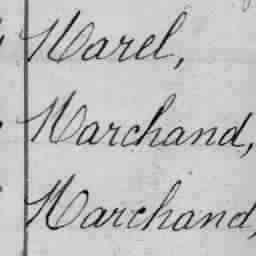 Marel,
Marchand,
Marchand,